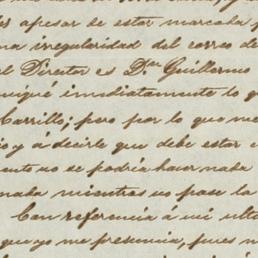 es apesar de estar marcaba p
na irregularidad del correo de
el Director es Dn. Guillermo
uniqué imediatamente lo q
Carrillo; pero por lo que me
o y á decirte que debe estar
ento no se podria hacer nada
naba mientras no pase la
Con referencia á mi ultr
que yo me presencia, pues n